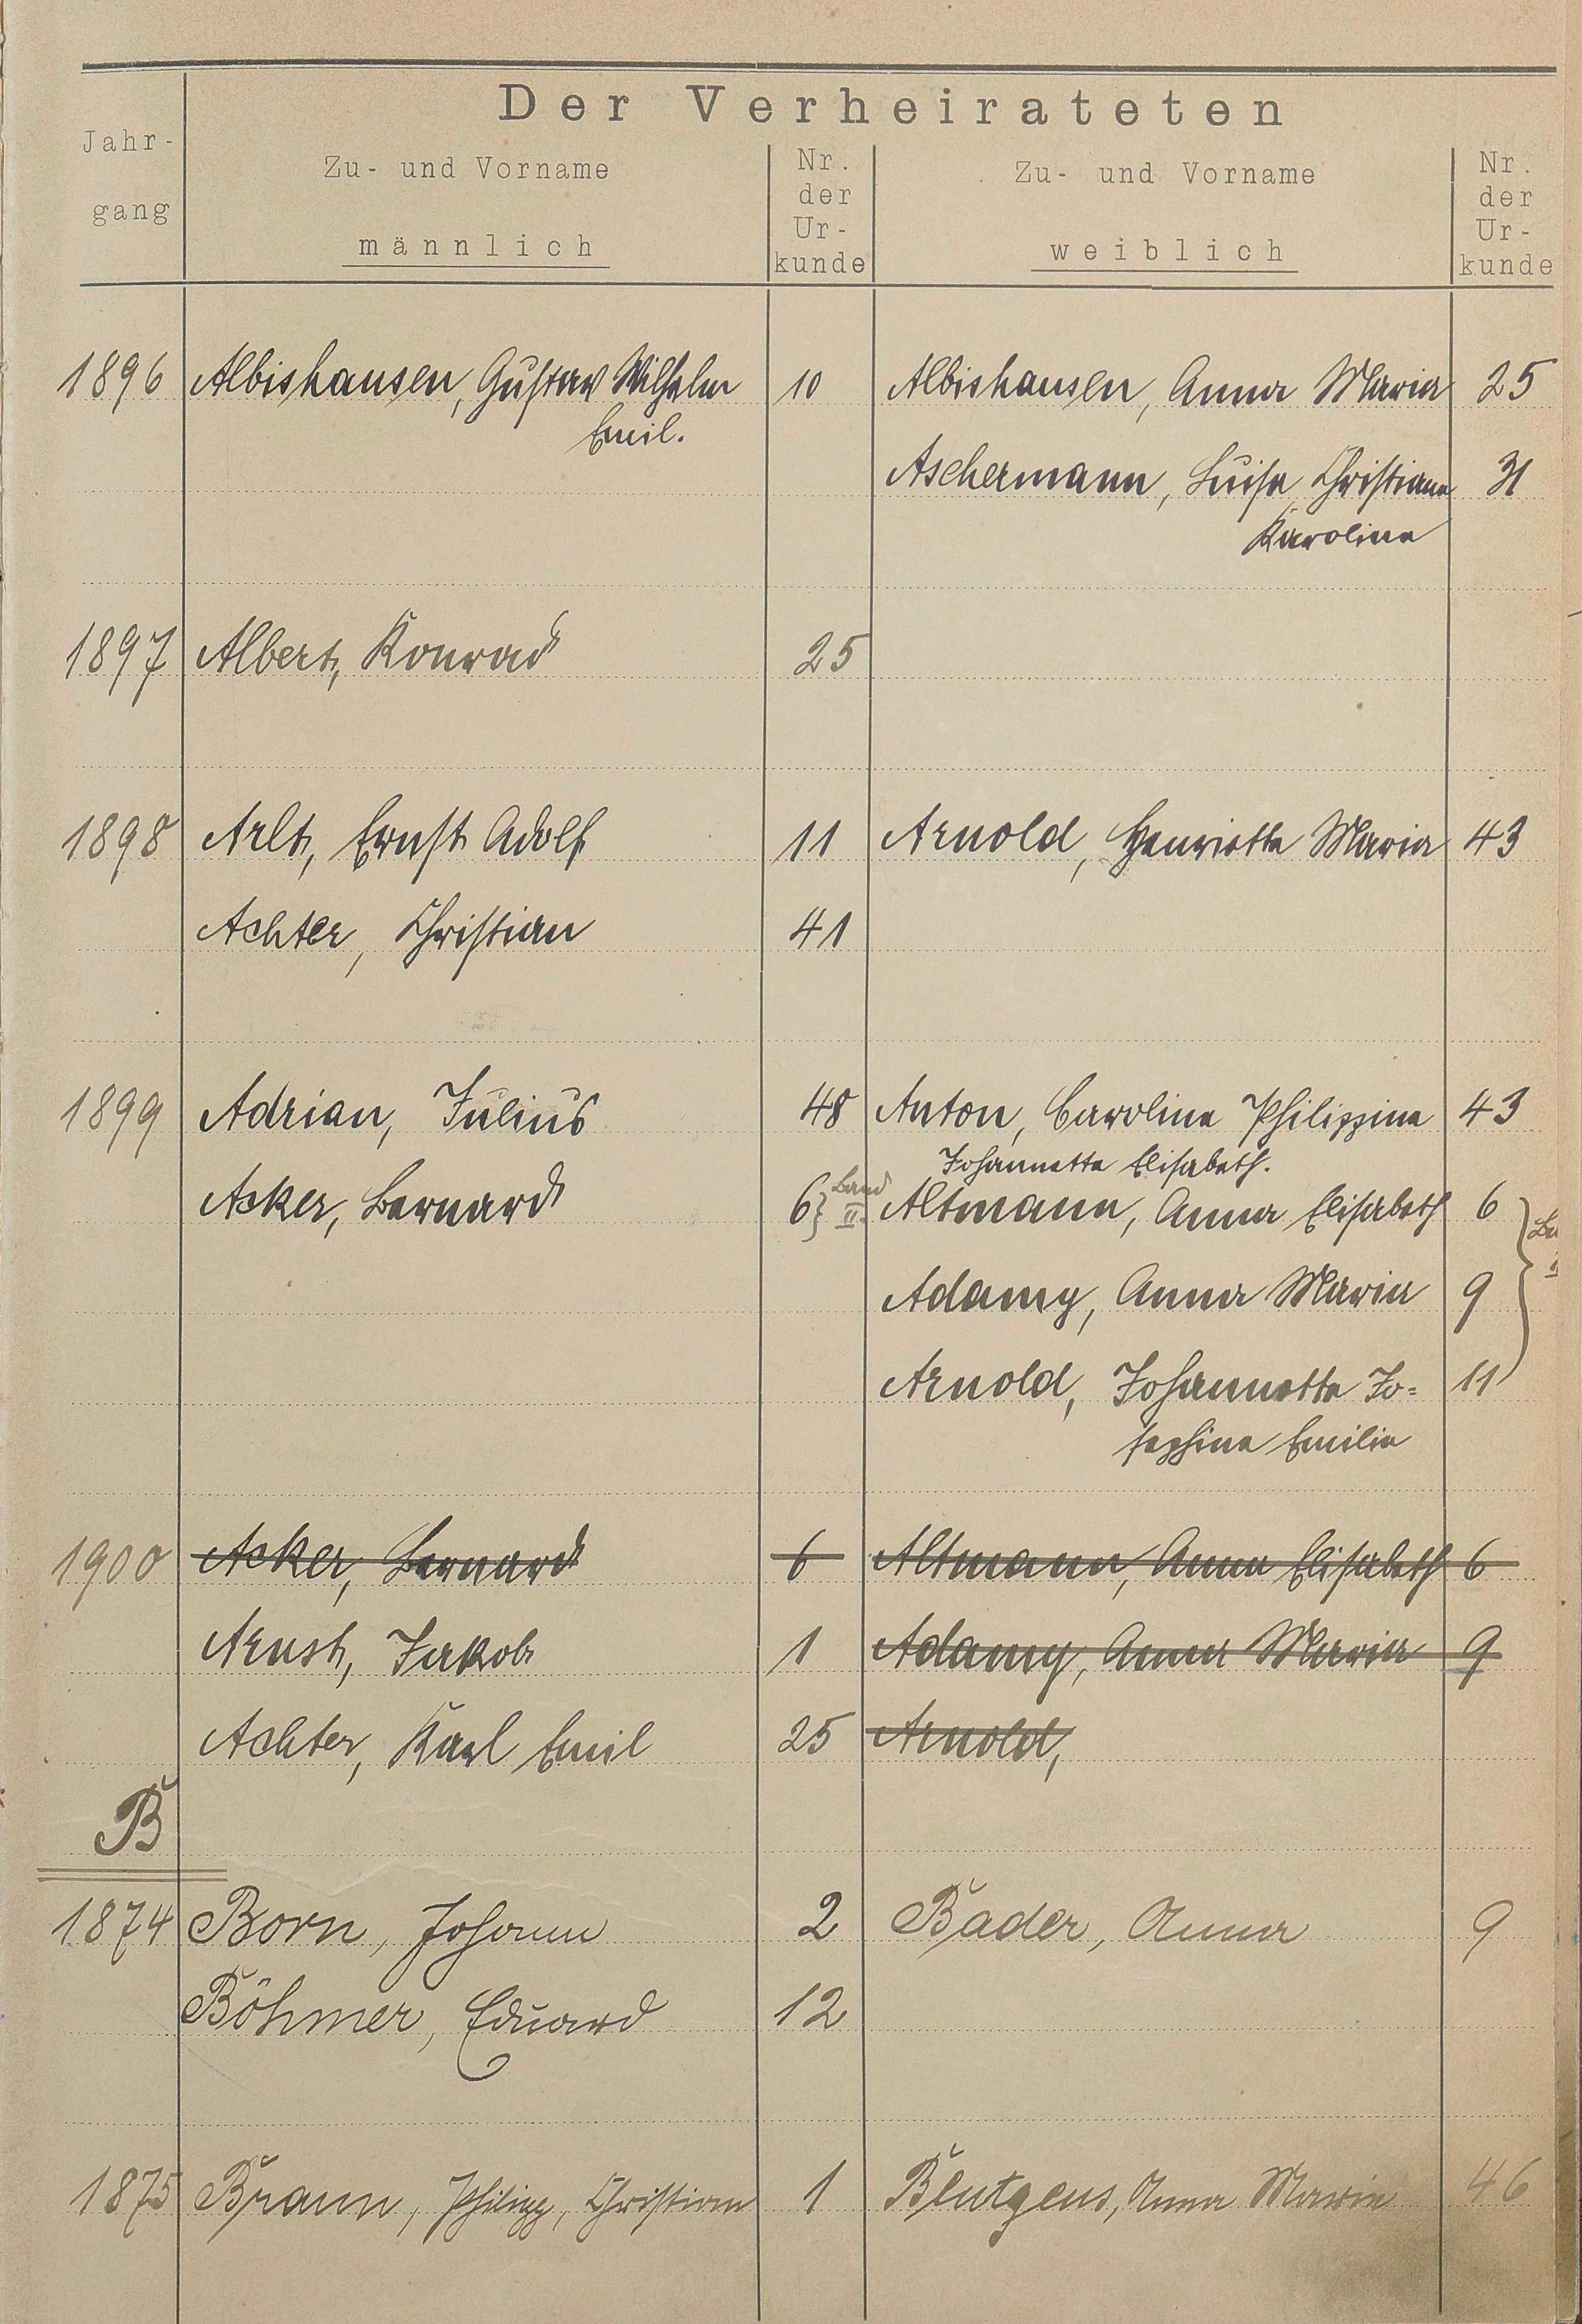 Der Verheirateten
Jahr-
gang
Zu- und Vorname
männlich
Nr.
der
Ur-
kunde
Zu- und Vorname
weiblich
Nr.
der
Ur-
kunde
1896 Albishausen, Gustav Wilhelm 10 Albishausen, Anna Maria 25
Emil.
Aschermann, Luise Christiane 31
Karoline
1897 Albert, Konrad 25
1898 Arlt, Ernst Adolf 11 Arnold, Henriette Maria 43
Achter, Christian 41
1899 Adrian, Julius 48 Anton, Caroline Philippine 43
Johannette Elisabeth.
Acker, Bernard 6 } Band II. Altmann, Anna Elisabeth 6
Adamy, Anna Maria 9
Arnold, Johannette Jo= 11
sephine Emilie
1900 Acker, Bernard 6 Altmann, Anna Elisabeth 6
Arnst, Jakob 1 Adamy, Anna Maria 9
Achter, Karl Emil 25 Arnold,
B
1874 Born, Johann 2 Bader, Anna 9
Böhmer, Eduard 12
1875 Braun, Philipp, Christian 1 Bentgens, Anna Maria 46